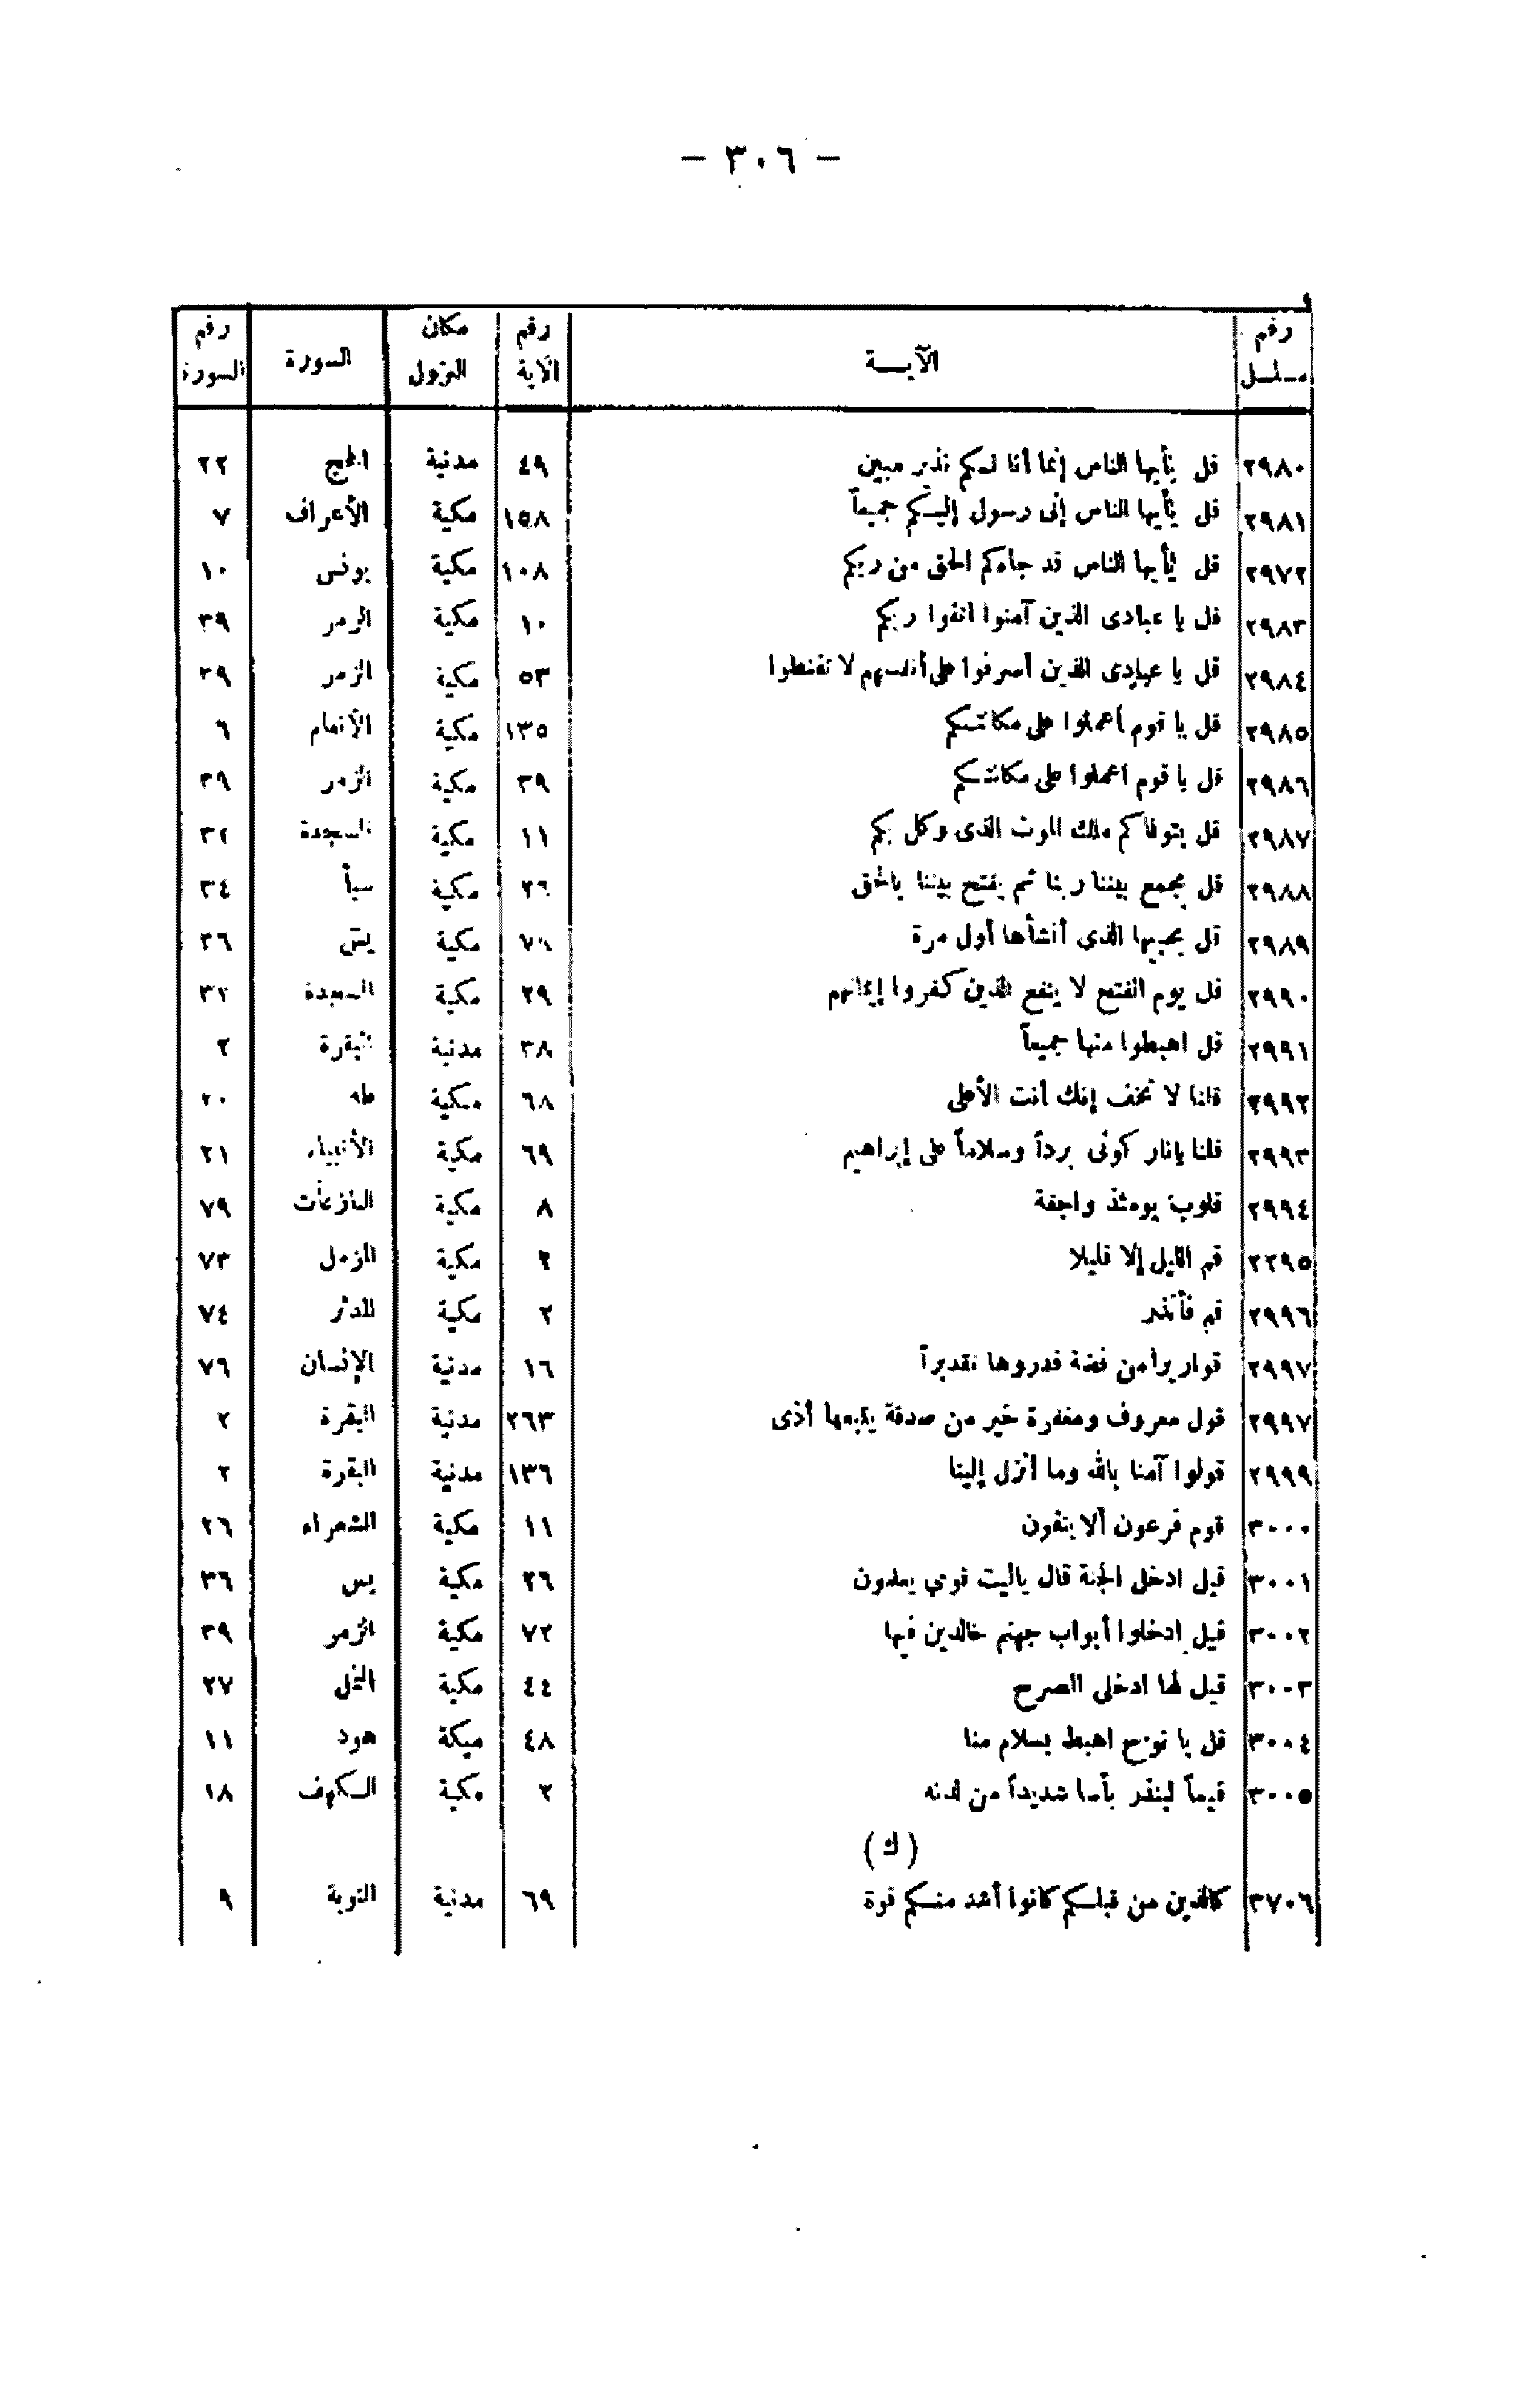 — ٣٠٦ —
رقم مسلسل | الآيــة | رقم الآية | مكان النزول | السورة | رقم السورة
٢٩٨٠ | قل يأيها الناس إنما أنا لكم نذير مبين | ٤٩ | مدنية | الحج | ٢٢
٢٩٨١ | قل يأيها الناس إنى رسول إليكم جميعاً | ١٥٨ | مكية | الأعراف | ٧
٢٩٧٢ | قل يأيها الناس قد جاءكم الحق من ربكم | ١٠٨ | مكية | يونس | ١٠
٢٩٨٣ | قل يا عبادى الذين آمنوا اتقوا ربكم | ١٠ | مكية | الزمر | ٣٩
٢٩٨٤ | قل يا عبادى الذين أسرفوا على أنفسهم لا تقنطوا | ٥٣ | مكية | الزمر | ٣٩
٢٩٨٥ | قل يا قوم أعملوا على مكانتكم | ١٣٥ | مكية | الأنعام | ٦
٢٩٨٦ | قل يا قوم اعملوا على مكانتكم | ٣٩ | مكية | الزمر | ٣٩
٢٩٨٧ | قل يتوفاكم ملك الموت الذى وكل بكم | ١١ | مكية | السجدة | ٣٢
٢٩٨٨ | قل يجمع بيننا ربنا ثم يفتح بيننا بالحق | ٢٦ | مكية | سبأ | ٣٤
٢٩٨٩ | قل يحييها الذى أنشأها أول مرة | ٧٩ | مكية | يس | ٣٦
٢٩٩٠ | قل يوم الفتح لا ينفع الذين كفروا إيمانهم | ٢٩ | مكية | السجدة | ٣٢
٢٩٩١ | قل اهبطوا منها جميعاً | ٣٨ | مدنية | البقرة | ٢
٢٩٩٢ | قلنا لا تخف إنك أنت الأعلى | ٦٨ | مكية | طه | ٢٠
٢٩٩٣ | قلنا يانار كونى برداً وسلاماً على إبراهيم | ٦٩ | مكية | الأنبياء | ٢١
٢٩٩٤ | قلوب يومئذ واجفة | ٨ | مكية | النازعات | ٧٩
٢٢٩٥ | قم الليل إلا قليلا | ٢ | مكية | المزمل | ٧٣
٢٩٩٦ | قم فأنذر | ٢ | مكية | المدثر | ٧٤
٢٩٩٧ | قوارير أمن فضة قدروها تقديراً | ١٦ | مدنية | الإنسان | ٧٩
٢٩٩٧ | قول معروف ومغفرة خير من صدقة يتبعها أذى | ٢٦٣ | مدنية | البقرة | ٢
٢٩٩٩ | قولوا آمنا بالله وما أنزل إلينا | ١٣٦ | مدنية | البقرة | ٢
٣٠٠٠ | قوم فرعون ألا يتقون | ١١ | مكية | الشعراء | ٢٦
٣٠٠١ | قيل ادخل الجنة قال ياليت قومي يعلمون | ٢٦ | مكية | يس | ٣٦
٣٠٠٢ | قيل ادخلوا أبواب جهنم خالدين فيها | ٧٢ | مكية | الزمر | ٣٩
٣٠٠٣ | قيل لها ادخلى الصرح | ٤٤ | مكية | النمل | ٢٧
٣٠٠٤ | قل يا نوح اهبط بسلام منا | ٤٨ | ميكة | هود | ١١
٣٠٠٥ | قيماً لينذر بأسا شديداً من لدنه | ٢ | مكية | الكهف | ١٨
(ك)
٣٧٠٦ | كالذين من قبلكم كانوا أشد منكم قوة | ٦٩ | مدنية | التوبة | ٩